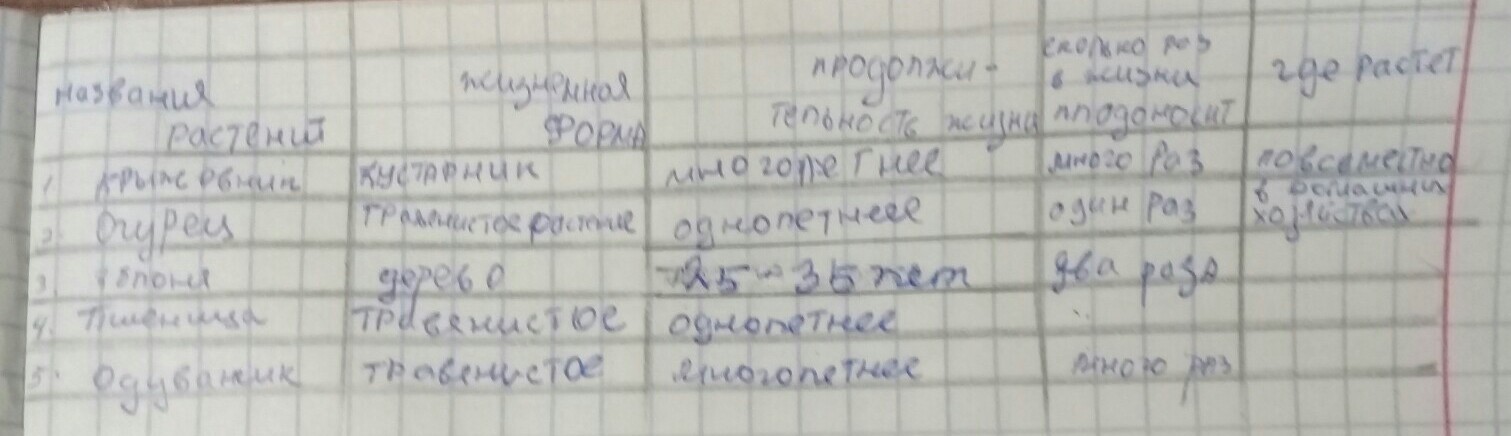 названия растений | жизненная форма | продолжи-тельность жизни | сколько раз в жизни плодоносит | где растет
1. крыжовник | кустарник | многолетнее | много раз | повсеместно
2. Огурец | травянистое растение | однолетнее | один раз | в домашних хозяйствах
3. яблоня | дерево | 25-35 лет | два раза
4. Пшеница | травянистое | однолетнее
5. Одуванчик | травенистое | многолетнее | много раз